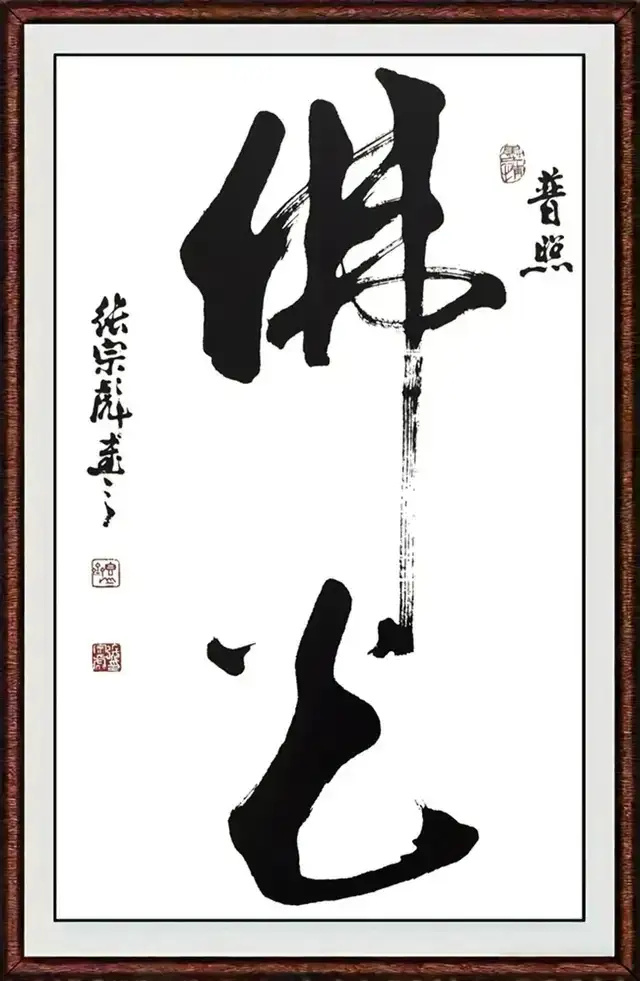 佛光
普照
张宗彪書之